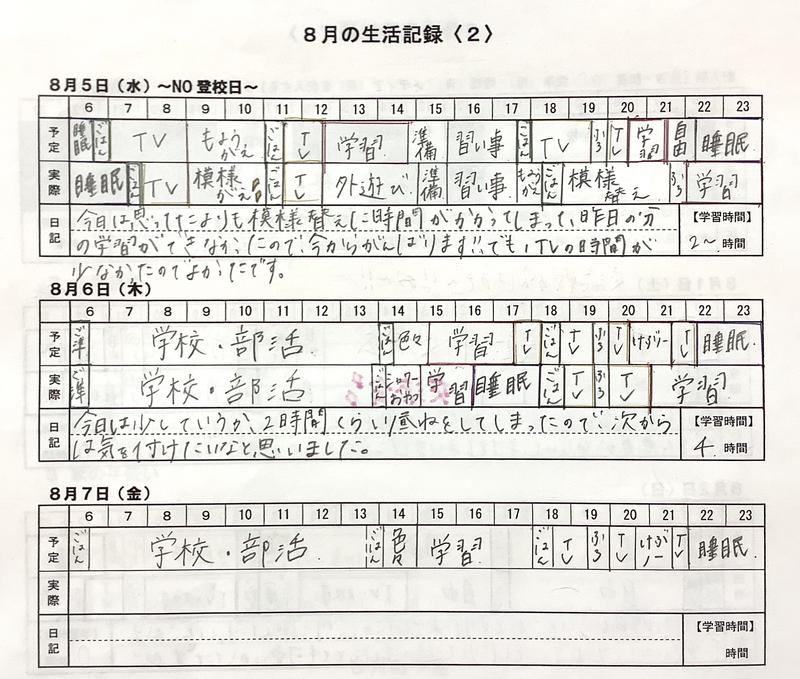 8月の生活記録〈2〉
8月5日（水）～NO登校日～
6 7 8 9 10 11 12 13 14 15 16 17 18 19 20 21 22 23
予定 睡眠 ごはん TV もようがえ ごはん TV 学習 準備 習い事 ごはん TV ふろ TV 学習 自由 睡眠
実際 睡眠 ごはん TV 模様がえ ごはん TV 外遊び 準備 習い事 もようがえ ごはん 模様替え ふろ 学習
日記 今日は思ってたよりも模様替えに時間がかかってしまって、昨日の分 【学習時間】
の学習ができなかったので、今からがんばります!!でも、TVの時間が 2～ 時間
少なかったのでよかったです。
8月6日（木）
6 7 8 9 10 11 12 13 14 15 16 17 18 19 20 21 22 23
予定 ご 準 学校・部活 ごはん 色々 学習 TV ごはん TV ふろ TV けいバー TV 睡眠
実際 ご 準 学校・部活 ごはん シャワー 学習 睡眠 ごはん TV ふろ TV 学習
日記 今日は少していうか、2時間くらい昼ねをしてしまったので、次から 【学習時間】
は気を付けたいなと思いました。 4 時間
8月7日（金）
6 7 8 9 10 11 12 13 14 15 16 17 18 19 20 21 22 23
予定 ごはん 学校・部活 ごはん 色々 学習 ごはん TV ふろ TV TV 睡眠
実際
日記 【学習時間】
時間